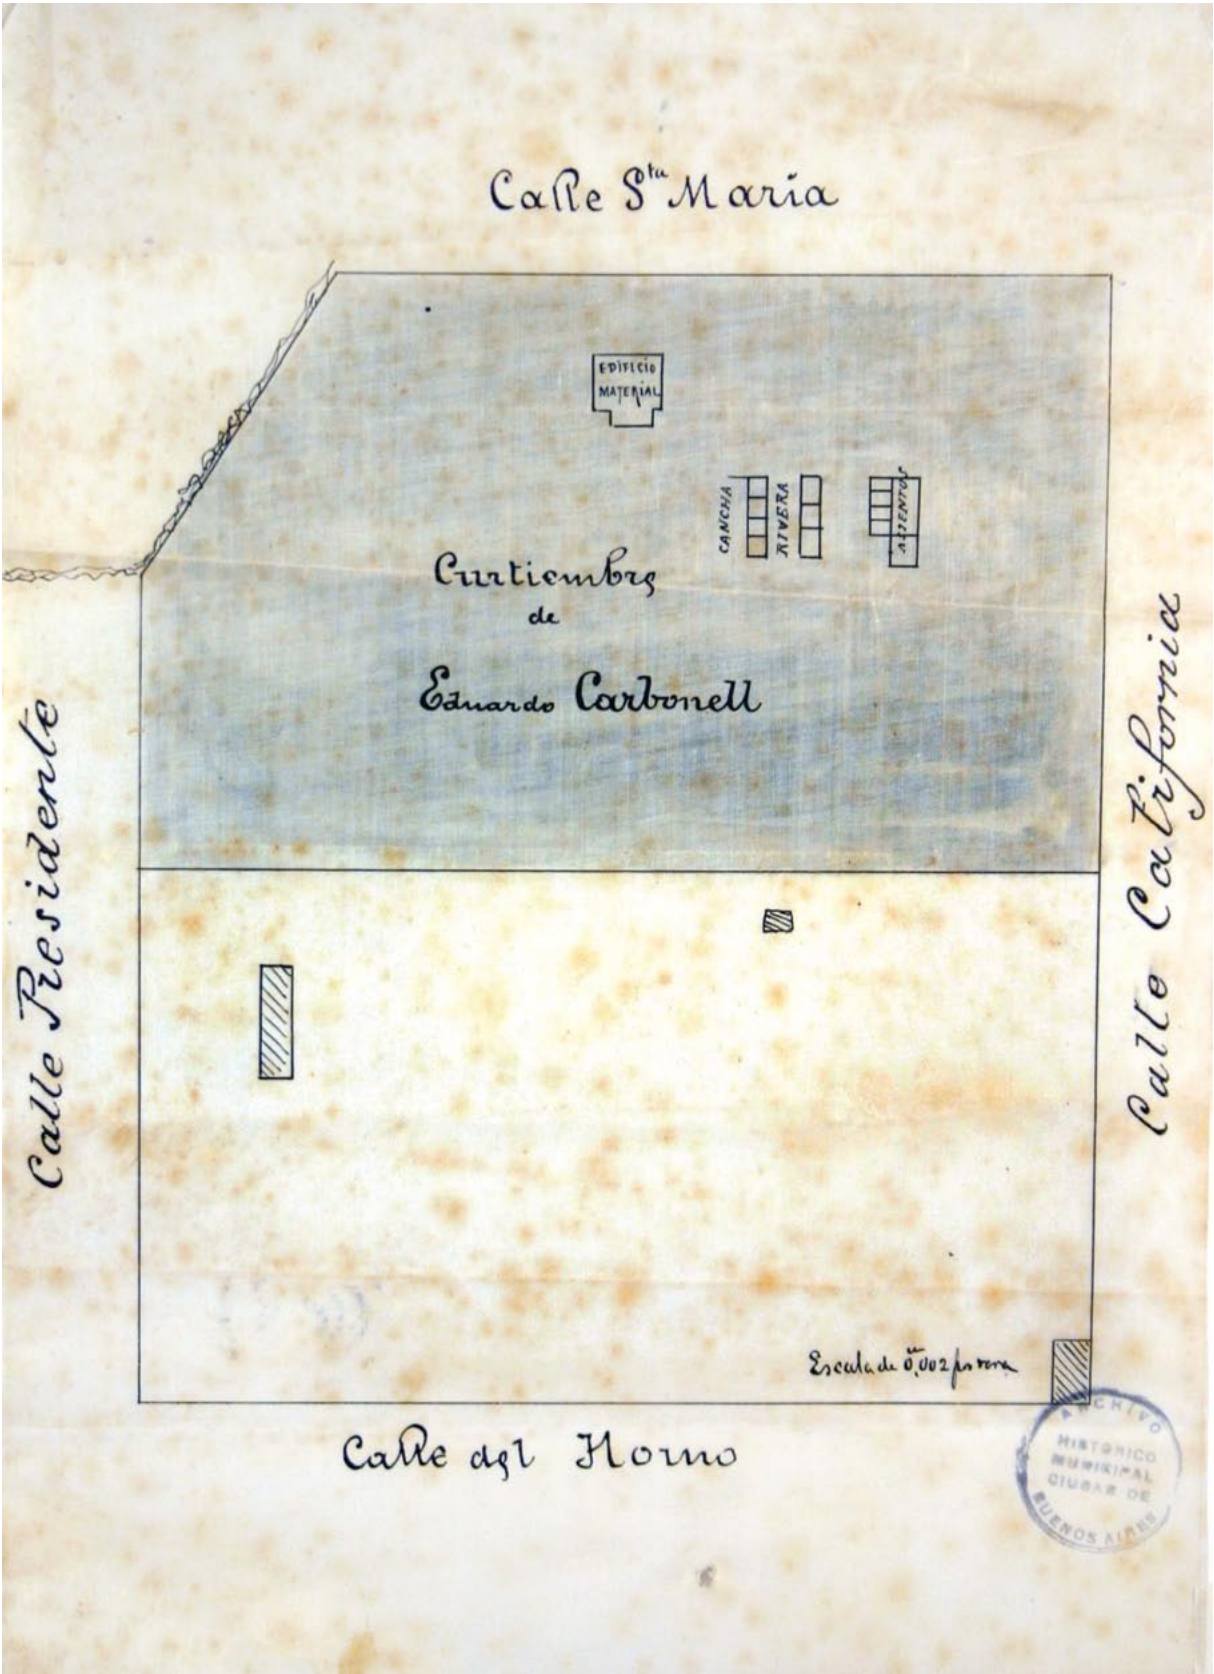 Calle Sta Maria
EDIFICIO
MATERIAL
CANCHA
RIVERA
ACIENTOS
Curtiembre
de
Eduardo Carbonell
Calle Presidente
Calle California
Escala de 0,m002 por vara
Calle del Horno
ARCHIVO
HISTORICO
MUNICIPAL
CIUDAD DE
BUENOS AIRES